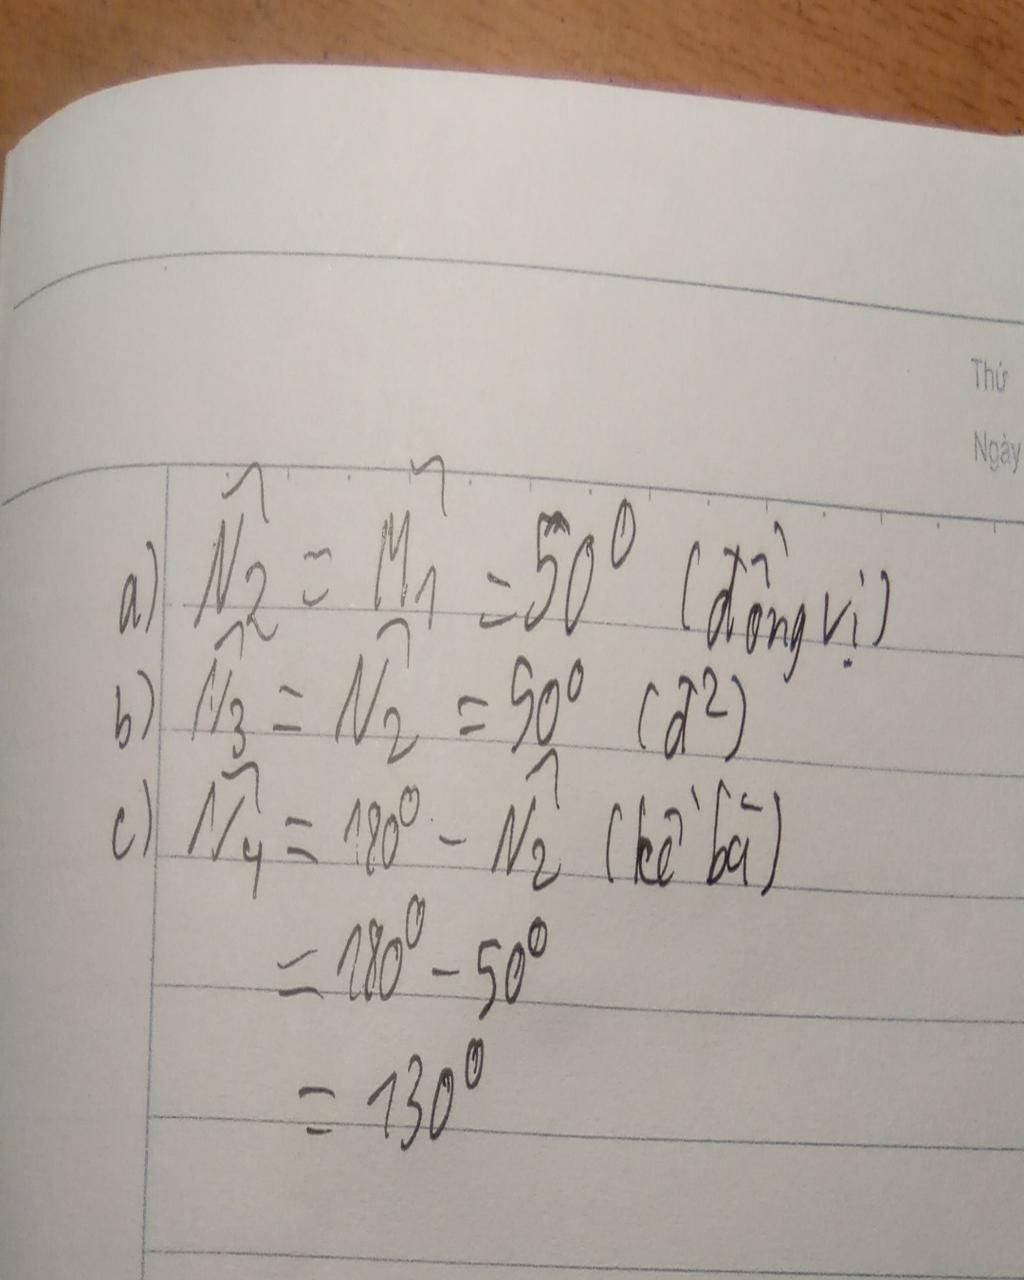 Thứ
Ngày
a) N̂₂ = M̂₁ = 50⁰ (đồng vị)
b) N̂₃ = N̂₂ = 50⁰ (đ²)
c) N̂₄ = 180⁰ - N̂₂ (kề bã)
= 180⁰ - 50⁰
= 130⁰